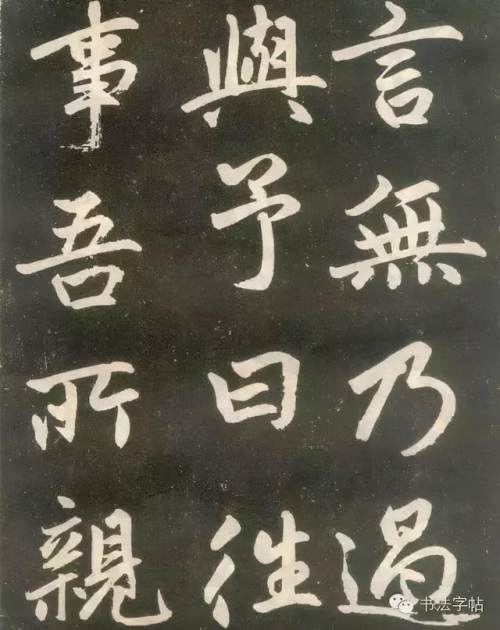 言無乃過
與予曰往
事吾所親
书法字帖